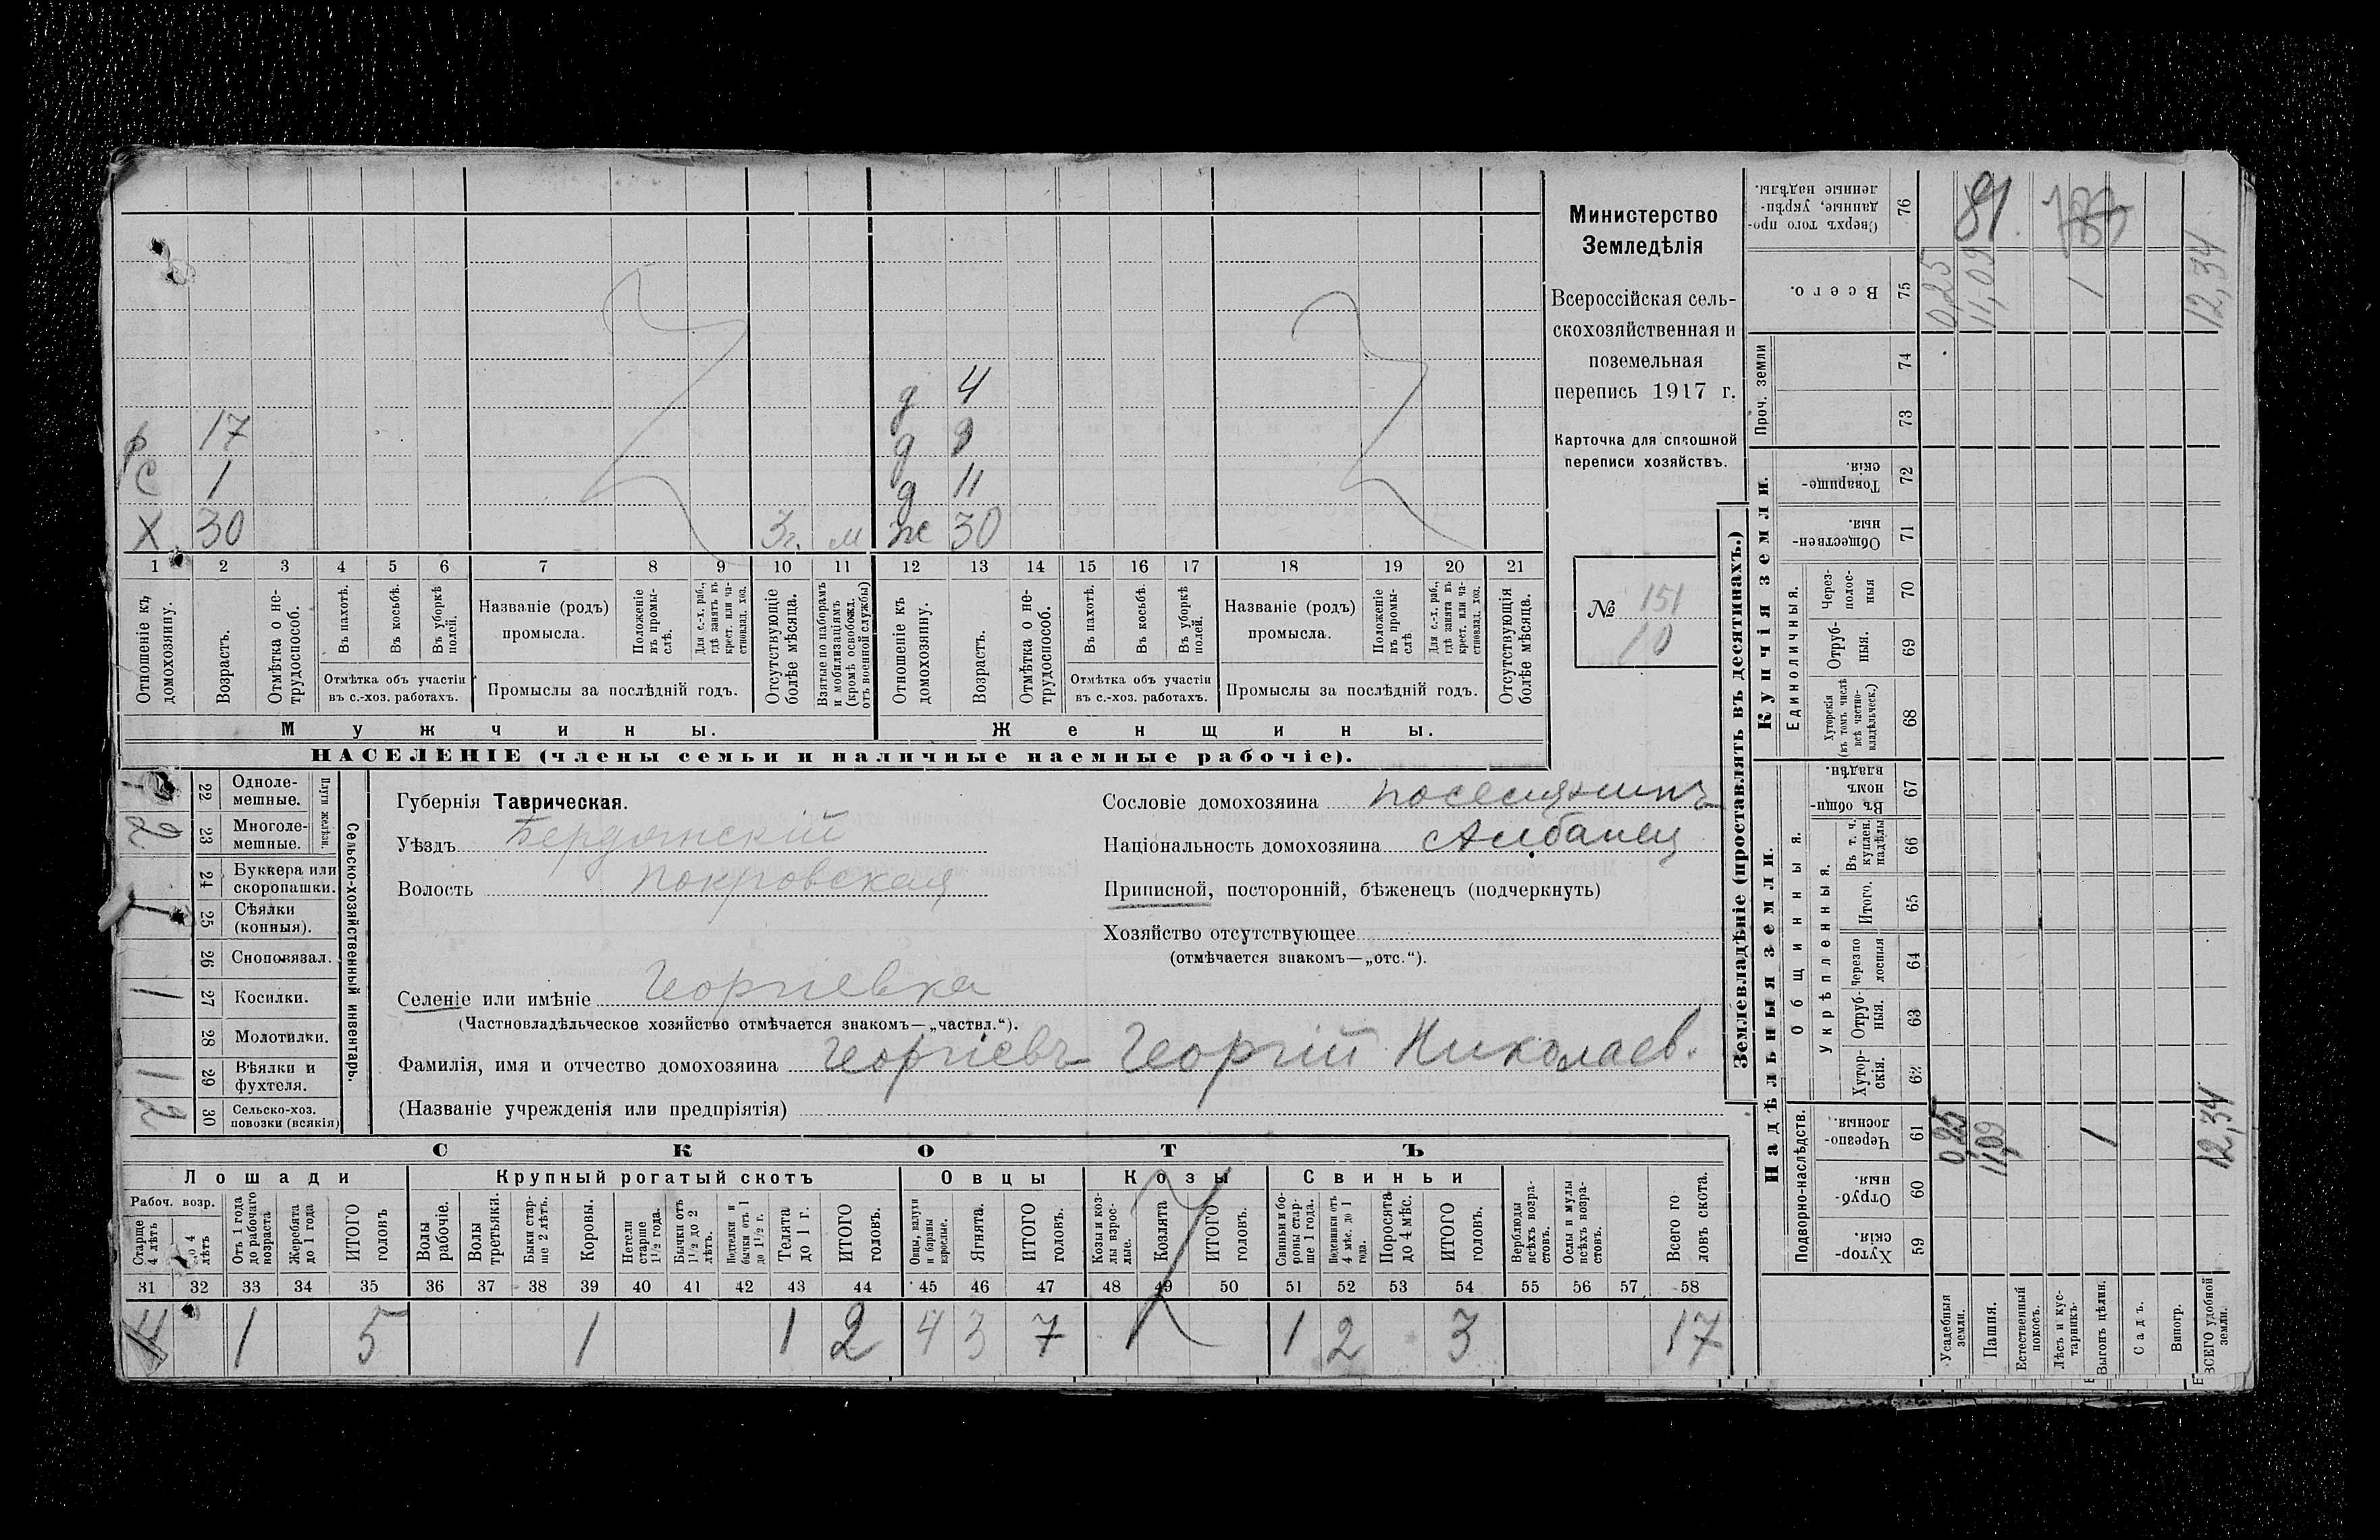 Министерство
Земледѣлія
Всероссійская сель-
скохозяйственная и
поземельная
перепись 1917 г.
Карточка для сплошной
переписи хозяйствъ.
№ 151
10
д 4
р 17 д 9
С 1 д 11
Х 30 3г. м ж 30
1 2 3 4 5 6 7 8 9 10 11 12 13 14 15 16 17 18 19 20 21
Отношеніе къ домохозяину.
Возрастъ.
Отмѣтка о не-трудоспособ.
Въ пахотѣ.
Въ косьбѣ.
Въ уборкѣ полей.
Отмѣтка объ участіи въ с.-хоз. работахъ.
Названіе (родъ) промысла.
Положеніе въ промы-слѣ.
Для с.-х. раб., гдѣ занятъ въ крест. или ча-стновлад. хоз.
Промыслы за послѣдній годъ.
Отсутствующіе болѣе мѣсяца.
Взятые по наборамъ и мобилизаціямъ (кромѣ освобожд. отъ военной службы)
Отношеніе къ домохозяину.
Возрастъ.
Отмѣтка о не-трудоспособ.
Въ пахотѣ.
Въ косьбѣ.
Въ уборкѣ полей.
Отмѣтка объ участіи въ с.-хоз. работахъ.
Названіе (родъ) промысла.
Положеніе въ промы-слѣ
Для с.-х. раб., гдѣ занята въ крест. или ча-стновлад. хоз.
Промыслы за послѣдній годъ.
Отсутствующія болѣе мѣсяца.
Мужчины. Женщины.
НАСЕЛЕНІЕ (члены семьи и наличные наемные рабочіе).
Сельско-хозяйственный инвентарь.
Плуги желѣзн.
22 Одноле-мешные.
23 Многоле-мешные. 2
24 Буккера или скоропашки.
25 Сѣялки (конныя). 1
26 Сноповязал.
27 Косилки. 1
28 Молотилки.
29 Вѣялки и фухтеля. 1
30 Сельско-хоз. повозки (всякія) 2
Губернія Таврическая.
Уѣздъ Бердянскій
Волость Покровская
Селеніе или имѣніе Георгіевка
(Частновладѣльческое хозяйство отмѣчается знакомъ—„частвл.“).
Фамилія, имя и отчество домохозяина Георгіевъ Георгій Николаев.
(Названіе учрежденія или предпріятія)
Сословіе домохозяина поселянинъ
Національность домохозяина Албанец
Приписной, посторонній, бѣженецъ (подчеркнуть)
Хозяйство отсутствующее
(отмѣчается знакомъ—„отс.“).
СКОТЪ
Лошади Крупный рогатый скотъ Овцы Козы Свиньи
Рабоч. возр.
Старше 4 лѣтъ
до 4 лѣтъ
Отъ 1 года до рабочаго возраста
Жеребята до 1 года
ИТОГО головъ
Волы рабочіе.
Волы третьяки.
Быки стар-ше 2 лѣтъ.
Коровы.
Нетели старше 1 1/2 года.
Бычки отъ 1 1/2 до 2 лѣтъ.
Нетелки и бычки отъ 1 до 1 1/2 г.
Телята до 1 г.
ИТОГО головъ.
Овцы, валухи и бараны взрослые.
Ягнята.
ИТОГО головъ.
Козы и коз-лы взрос-лые.
Козлята
ИТОГО головъ.
Свиньи и бо-ровы стар-ше 1 года.
Подсвинки отъ 4 мѣс. до 1 года.
Поросята до 4 мѣс.
ИТОГО головъ.
Верблюды всѣхъ возра-стовъ.
Ослы и мулы всѣхъ возра-стовъ.
Всего го-ловъ скота.
31 32 33 34 35 36 37 38 39 40 41 42 43 44 45 46 47 48 49 50 51 52 53 54 55 56 57 58
4 1 5 1 1 2 4 3 7 1 2 3 17
Землевладѣніе (проставлять въ десятинахъ.)
Надѣльныя земли. Купчія земли.
Подворно-наслѣдств.
Общинныя.
Укрѣпленныя.
Единоличныя.
Проч. земли
59 Хутор-скія.
60 Отруб-ныя.
61 Черезпо-лосныя.
62 Хутор-скія.
63 Отруб-ныя.
64 Черезпо-лосныя
65 Итого.
66 Въ т. ч. куплен. надѣлы
67 Въ общин-номъ владѣн.
68 Хуторскія (въ томъ числѣ всѣ частно-владѣльческ.)
69 Отруб-ныя.
70 Через-полос-ныя
71 Обществен-ныя.
72 Товарище-скія.
73
74
75 Всего.
76 Сверхъ того про-данные, укрѣп-ленные надѣлы.
Усадебныя земли.
Пашня.
Естественный покосъ.
Лѣсъ и кус-тарникъ.
Выгонъ цѣлин.
Садъ.
Виногр.
ВСЕГО удобной земли.
0,25 11,09 1 12,34
0,25 11,09 1 12,34
81